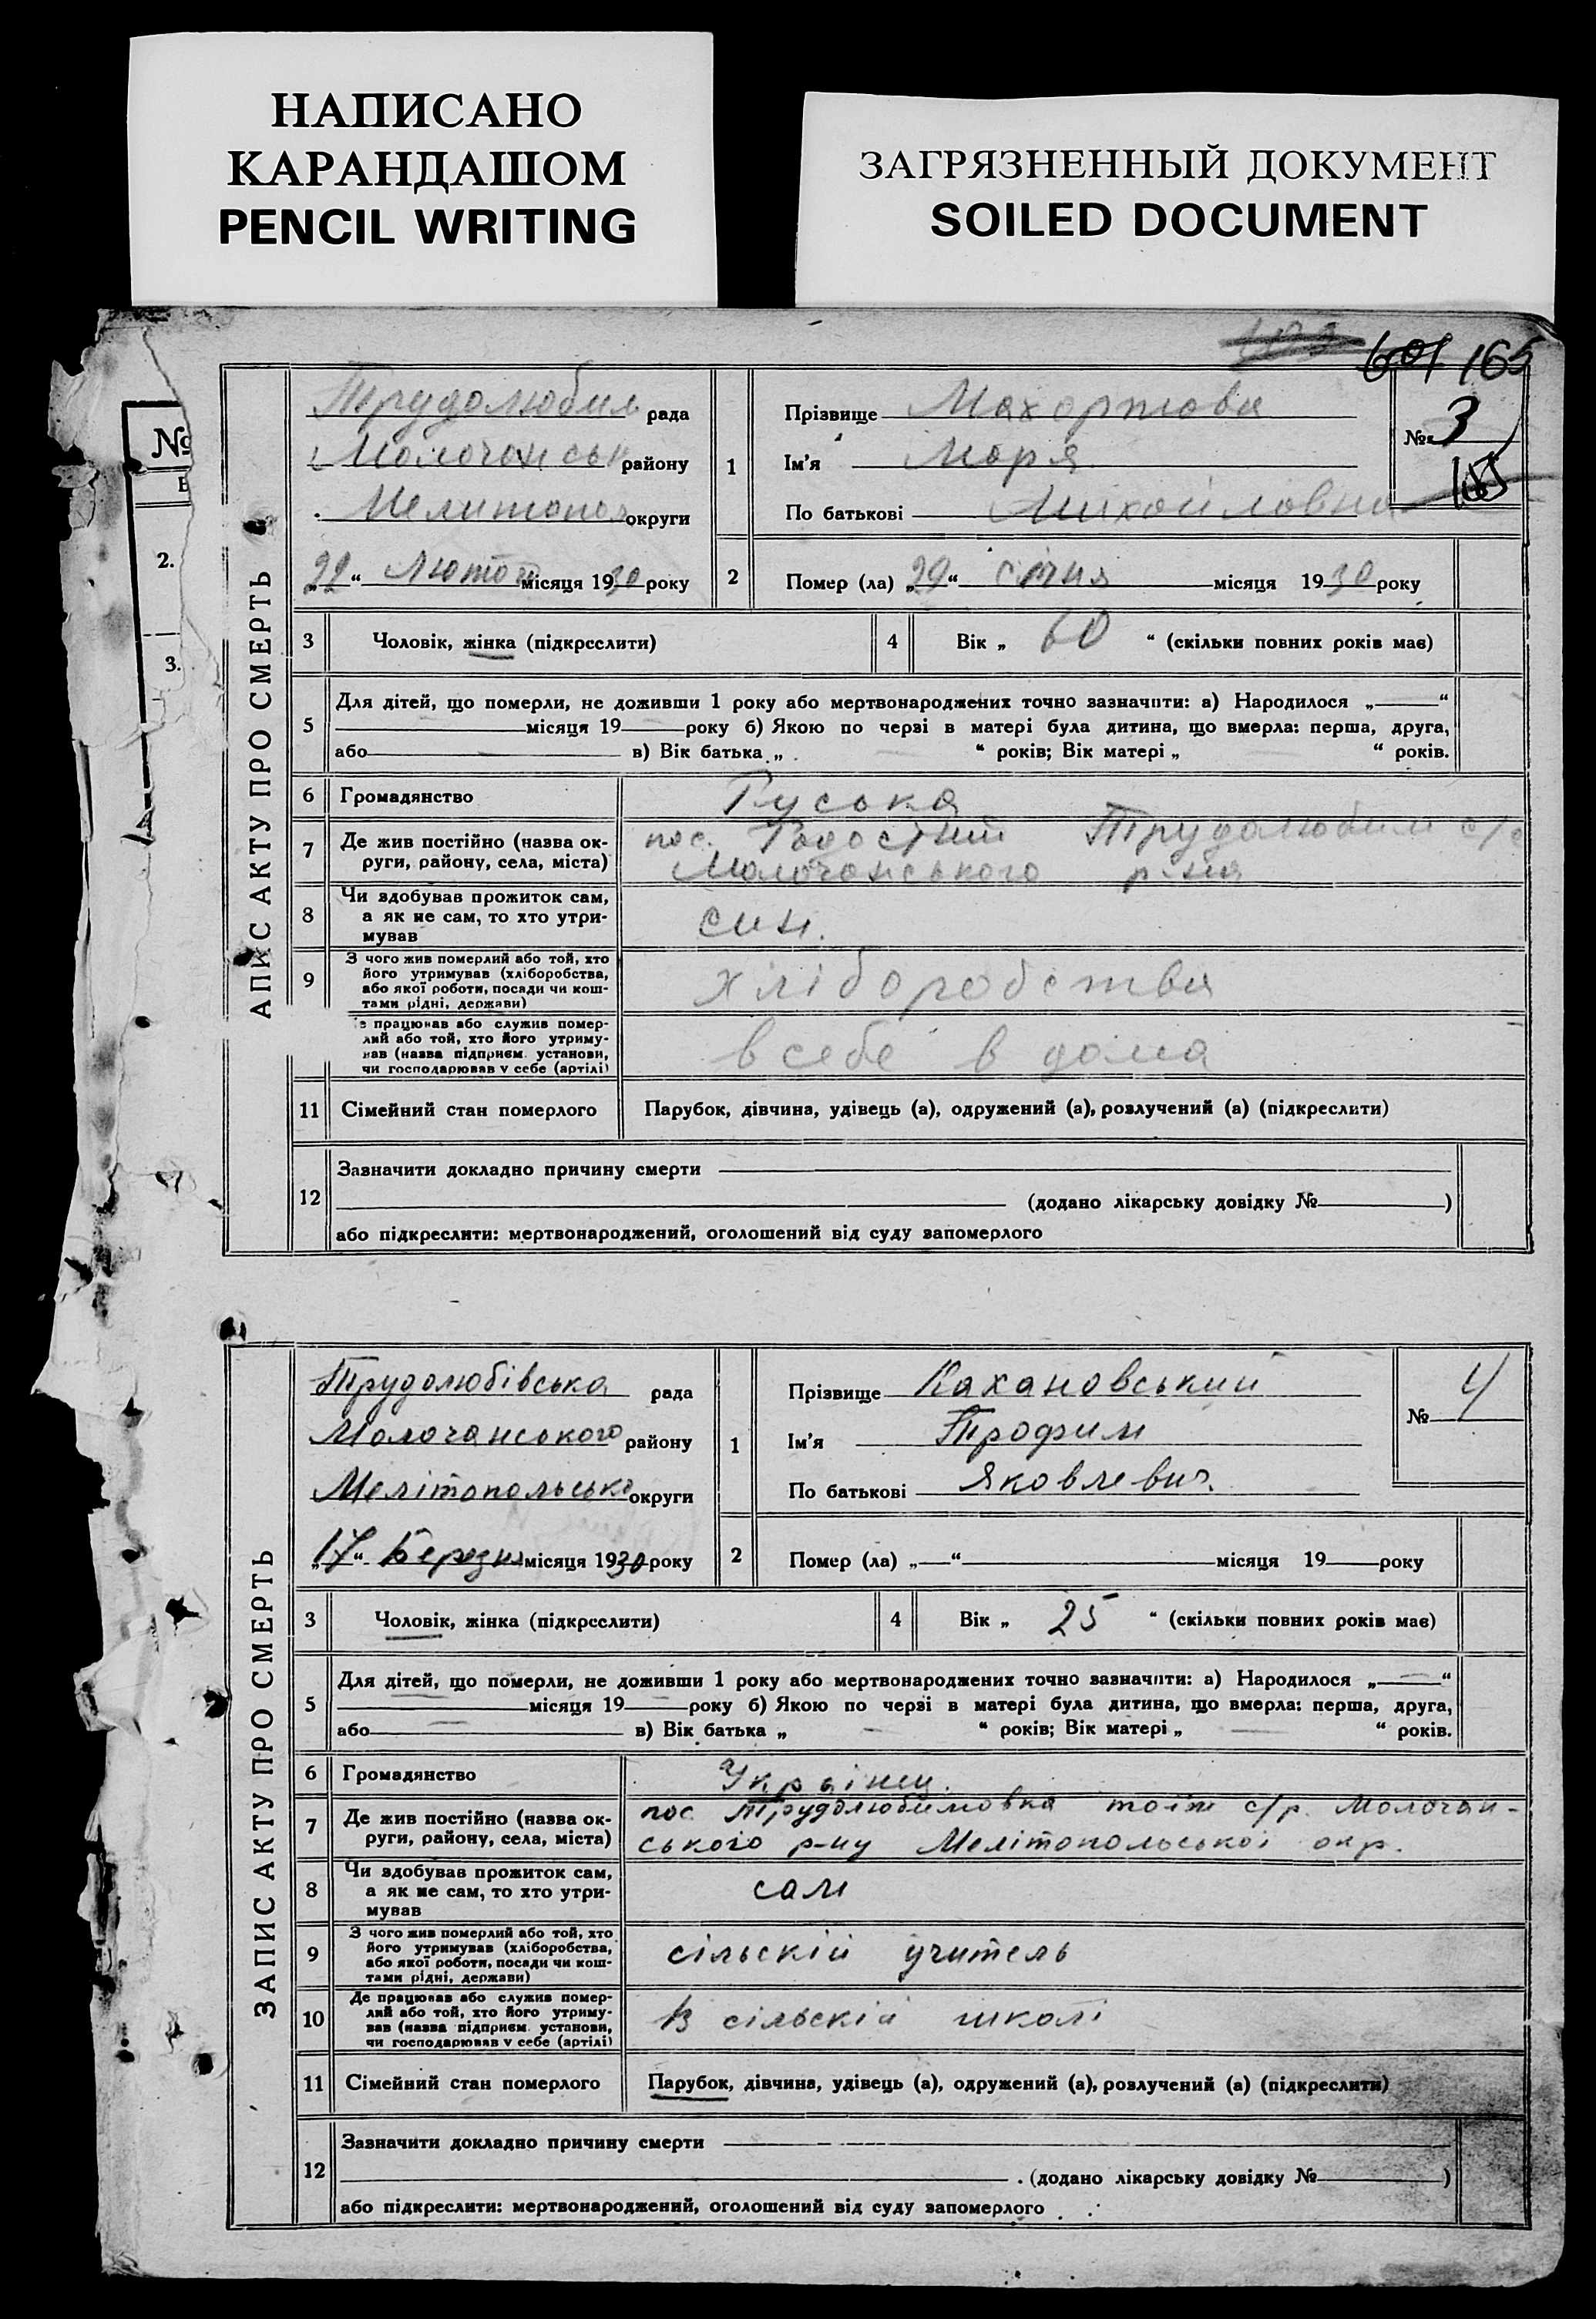 НАПИСАНО
КАРАНДАШОМ
PENCIL WRITING
ЗАГРЯЗНЕННЫЙ ДОКУМЕНТ
SOILED DOCUMENT
601 165
№
2.
3.
АПИС АКТУ ПРО СМЕРТЬ
Трудолюбим рада
Молочанськ району
Мелитопол округи
„22“ Лютого місяця 1930 року
1
Прізвище Махортова
Ім'я Марія
По батькові Михайловна
№ 3
165
2
Помер (ла) „29“ січня місяця 1930 року
3
Чоловік, жінка (підкреслити)
4
Вік „ 60 “ (скільки повних років має)
5
Для дітей, що померли, не доживши 1 року або мертвонароджених точно зазначити: а) Народилося „ “
місяця 19 року б) Якою по черзі в матері була дитина, що вмерла: перша, друга,
або в) Вік батька „ “ років; Вік матері „ “ років.
6
Громадянство
Руська
7
Де жив постійно (назва ок-
руги, району, села, міста)
пос. Трудолюбим с/р
Молочанського р-на
8
Чи здобував прожиток сам,
а як не сам, то хто утри-
мував
син.
9
З чого жив померлий або той, хто
його утримував (хліборобства,
або якої роботи, посади чи кош-
тами рідні, держави)
хліборобства
е працював або служив помер-
лий або той, хто його утриму-
вав (назва підприєм. установи,
чи господарював у себе (артілі)
в себе в дома
11
Сімейний стан померлого
Парубок, дівчина, удівець (а), одружений (а), розлучений (а) (підкреслити)
12
Зазначити докладно причину смерти
(додано лікарську довідку № )
або підкреслити: мертвонароджений, оголошений від суду запомерлого
ЗАПИС АКТУ ПРО СМЕРТЬ
Трудолюбівська рада
Молочанського району
Мелітопольсько округи
„17“ Березня місяця 1930 року
1
Прізвище Кахановський
Ім'я Трофим
По батькові Яковлевич.
№ 4
2
Помер (ла) „ “ місяця 19 року
3
Чоловік, жінка (підкреслити)
4
Вік „ 25 “ (скільки повних років має)
5
Для дітей, що померли, не доживши 1 року або мертвонароджених точно зазначити: а) Народилося „ “
місяця 19 року б) Якою по черзі в матері була дитина, що вмерла: перша, друга,
або в) Вік батька „ “ років; Вік матері „ “ років.
6
Громадянство
Украінец.
7
Де жив постійно (назва ок-
руги, району, села, міста)
пос Трудолюбимовка тоїж с/р. Молочан-
ського р-ну Мелітопольської окр.
8
Чи здобував прожиток сам,
а як не сам, то хто утри-
мував
сам
9
З чого жив померлий або той, хто
його утримував (хліборобства,
або якої роботи, посади чи кош-
тами рідні, держави)
сільскій учитель
10
Де працював або служив помер-
лий або той, хто його утриму-
вав (назва підприєм. установи,
чи господарював у себе (артілі)
В сільскій школі
11
Сімейний стан померлого
Парубок, дівчина, удівець (а), одружений (а), розлучений (а) (підкреслити)
12
Зазначити докладно причину смерти
(додано лікарську довідку № )
або підкреслити: мертвонароджений, оголошений від суду запомерлого